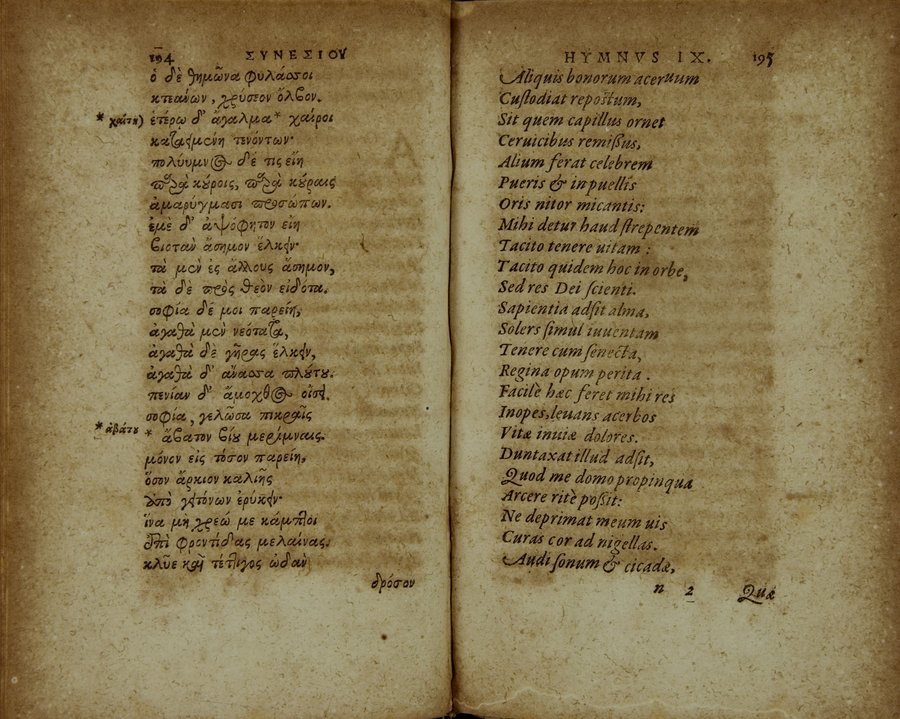 194 ΣΥΝΕΣΙΟΥ
ὁ δὲ θημῶνα φυλάσσοι
κτεάνων, χρύσεον ὄλβον.
* χαίτη) ἑτέρῳ δ' ἄγαλμα* χαίροι
καταειμένη τενόντων·
πολύυμνος δέ τις εἴη
παρὰ κούροις, παρὰ κούραις
ἀμαρύγμασι προσώπων.
ἐμὲ δ' ἀψόφητον εἴη
βιοτὰν ἄσημον ἕλκειν·
τὰ μὲν ἐς ἄλλους ἄσημον,
τὰ δὲ πρὸς θεὸν εἰδότα.
σοφία δέ μοι παρείη,
ἀγαθὰ μὲν νεότατα,
ἀγαθὰ δὲ γῆρας ἕλκειν,
ἀγαθὰ δ' ἄνασσα πλούτου.
πενίαν δ' ἄμοχθος οἴσει
σοφία, γελῶσα πικραῖς
* ἀβάτου * ἄβατον βίου μερίμναις.
μόνον εἰς τόσον παρείη,
ὅσον ἄρκιον καλιῆς
ἀπὸ γειτόνων ἐρύκειν·
ἵνα μὴ χρεώ με κάμπτοι
ἐπὶ φροντίδας μελαίνας.
κλῦε καὶ τέττιγος ᾠδὰν
δρόσον
HYMNVS IX. 195
Aliquis bonorum aceruum
Custodiat repostum,
Sit quem capillus ornet
Ceruicibus remissus,
Alium ferat celebrem
Pueris & in puellis
Oris nitor micantis:
Mihi detur haud strepentem
Tacito tenere uitam :
Tacito quidem hoc in orbe,
Sed res Dei scienti.
Sapientia adsit alma,
Solers simul iuuentam
Tenere cum senecta,
Regina opum perita .
Facilè hæc feret mihi res
Inopes, leuans acerbos
Vitæ inuiæ dolores.
Duntaxat illud adsit,
Quod me domo propinqua
Arcere ritè possit:
Ne deprimat meum uis
Curas cor ad nigellas.
Audi sonum & cicadæ,
n 2 Quæ